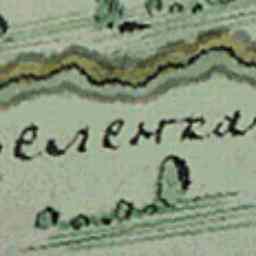 еленка